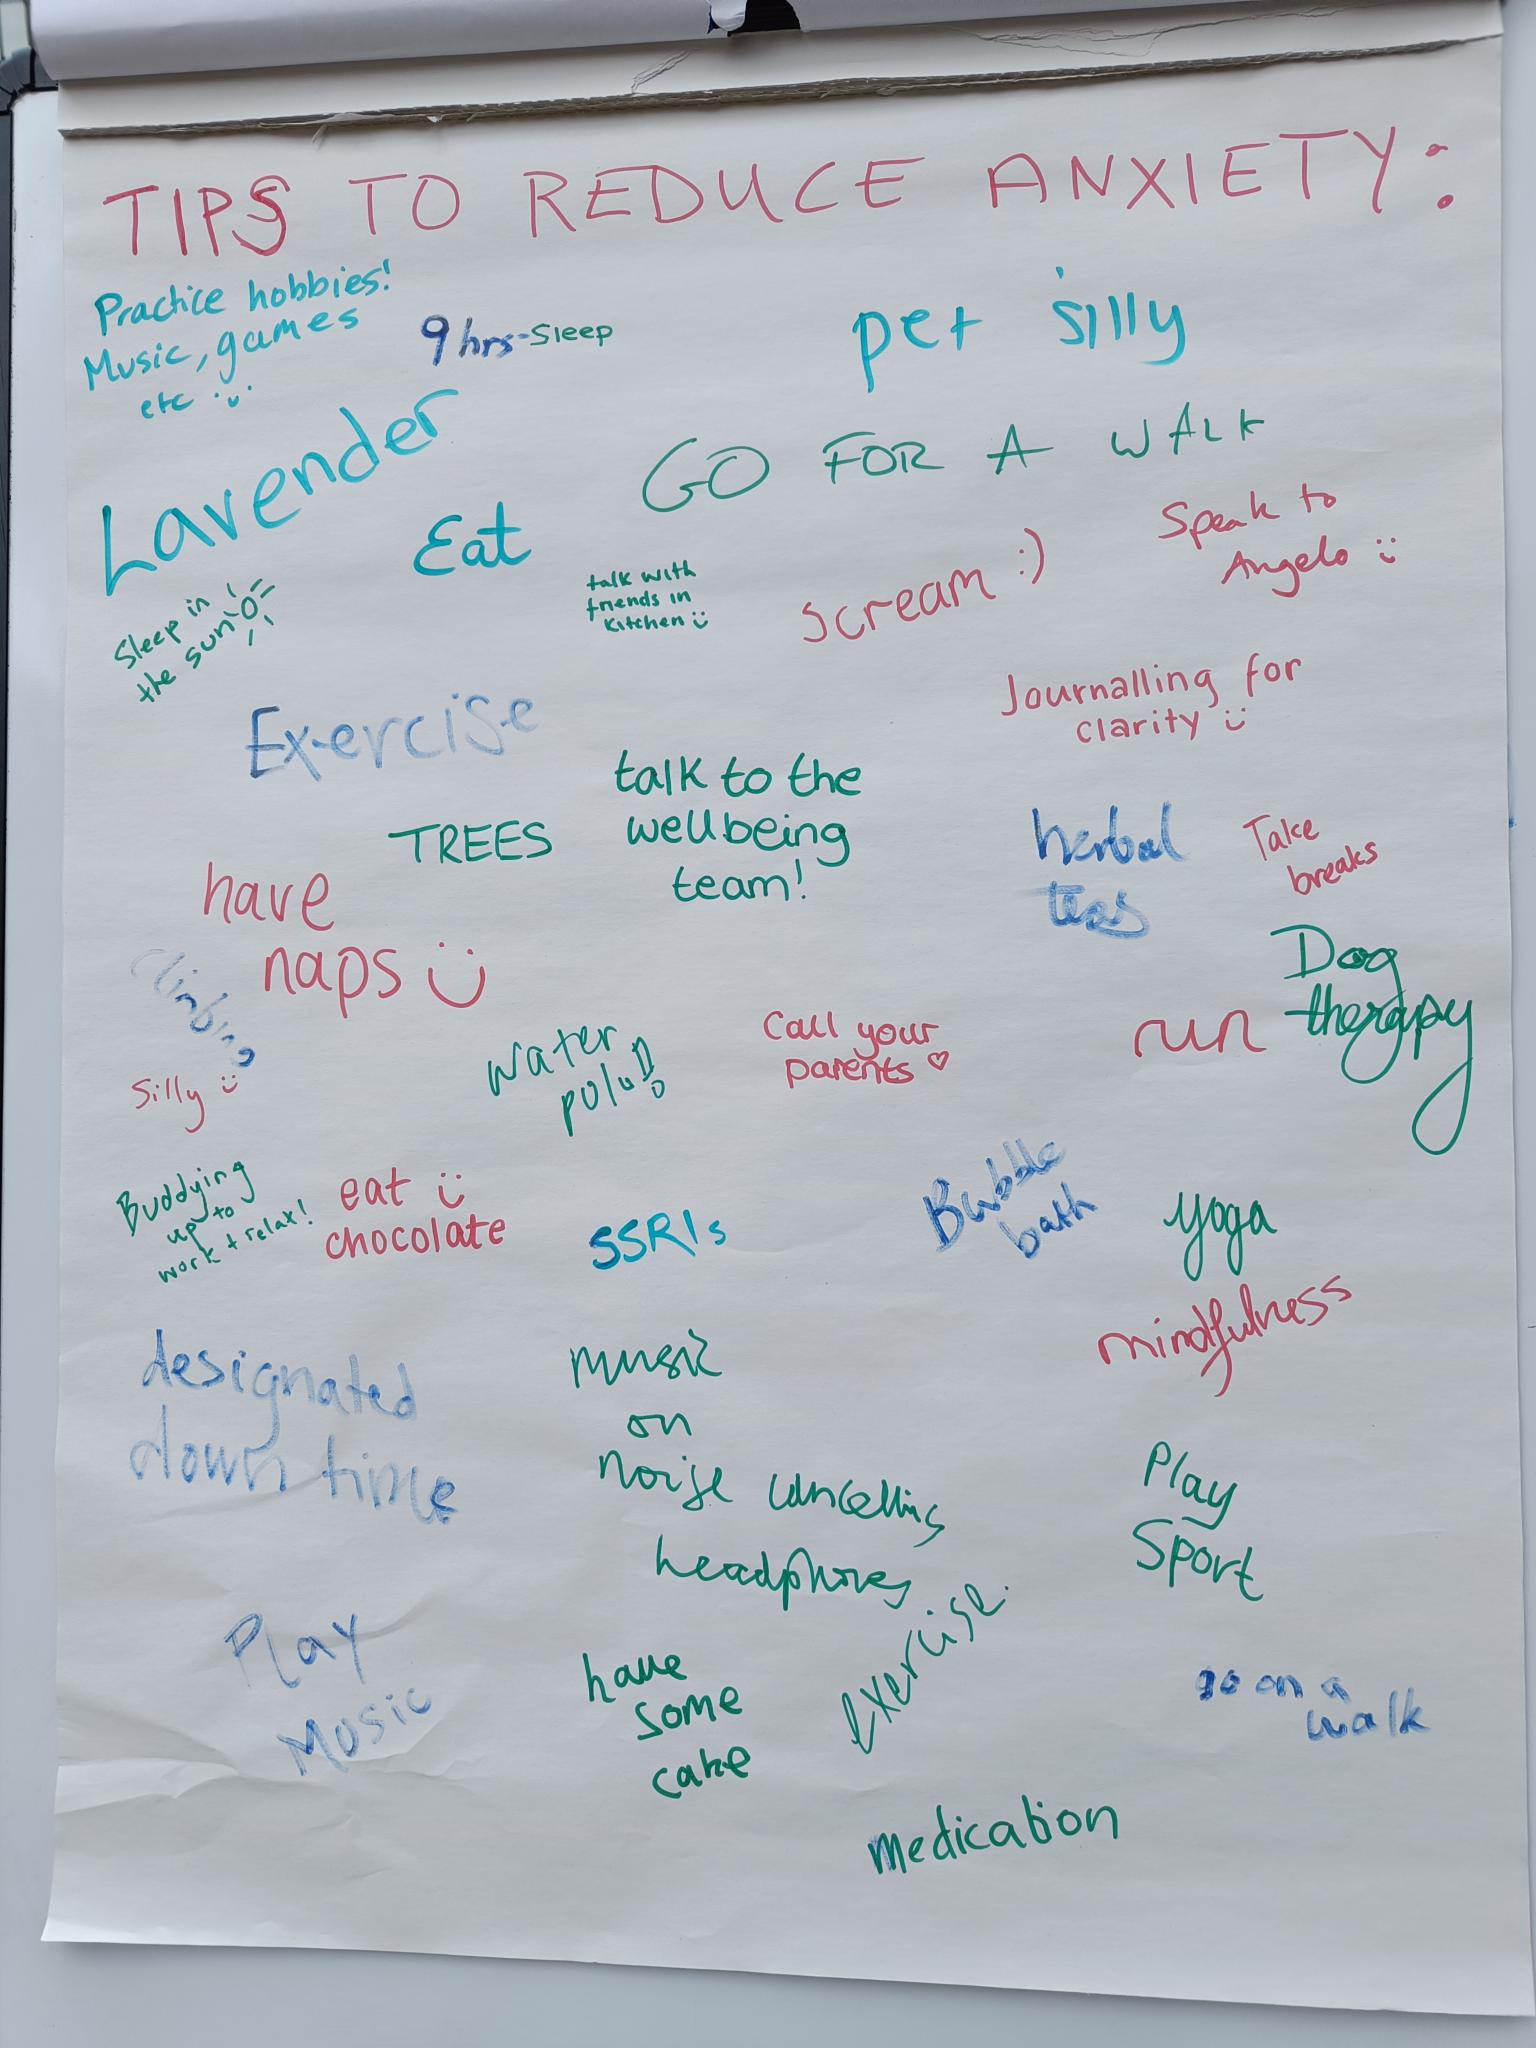 TIPS TO REDUCE ANXIETY:
Practice hobbies!
Music, games
etc
9 hrs-Sleep
pet 'silly
Lavender
GO FOR A WALK
Eat
Speak to
Angelo
talk with
friends in
kitchen
Scream :)
Sleep in
the sun
Journalling for
clarity
Exercise
talk to the
wellbeing
team!
TREES
herbal
teas
Take
breaks
have
naps
Dog
therapy
Climbing
Silly
Water
polo!!
Call your
parents
run
Buddying
up to
work + relax!
eat
chocolate
SSRIs
Bubble
bath
yoga
mindfulness
designated
down time
music
on
noise cancelling
headphones
Play
Sport
Play
Music
have
some
cake
exercise.
go on a
walk
Medication